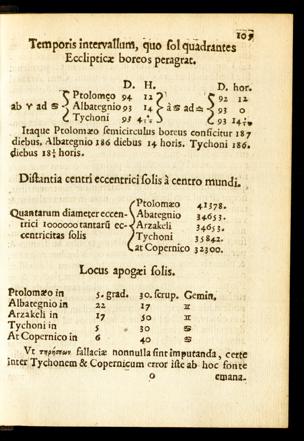 109
Temporis intervallum, quo sol quadrantes
Ecclipticæ boreos peragrat.
D. H. D. hor.
Ptolomæo 94 12 92 12
ab ♈ ad ♋ Albategnio 93 14 à ♋ ad ♎ 93 0
Tychoni 93 93
Itaque Ptolomæo semicirculus boreus conficitur 187
diebus, Albategnio 186 diebus 14 horis. Tychoni 186.
diebus 18 horis.
Distantia centri eccentrici solis à centro mundi.
Ptolomæo 41378.
Quantarum diameter eccen- Abategnio 34653.
trici 1000000 tantarū ec- Arzakeli 34653.
centricitas solis Tychoni 35842.
at Copernico 32300.
Locus apogæi solis.
Ptolomæo in 5. grad. 30. scrup. Gemin,
Albategnio in 22 17 ♊
Arzakeli in 17 50 ♊
Tychoni in 5 30 ♋
At Copernico in 6 40 ♋
Vt τηρήσεων fallaciæ nonnulla sint imputanda, certe
inter Tychonem & Copernicum error iste ab hoc fonte
O emana.